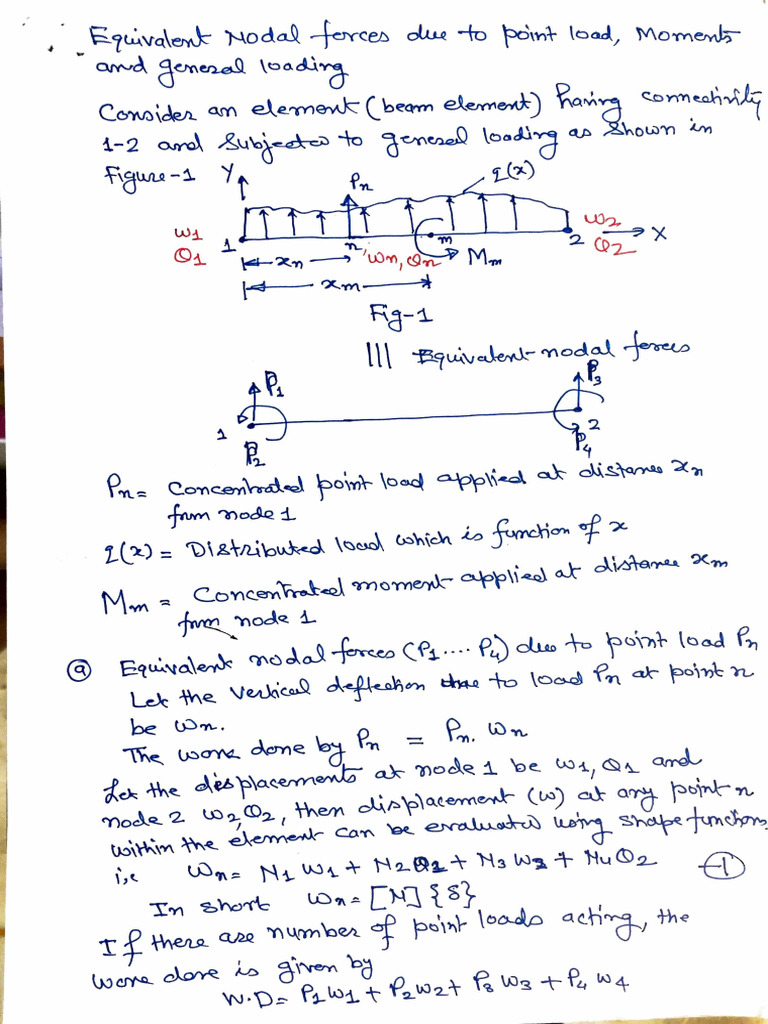 Equivalent Nodal forces due to point load, Moments
and general loading
Consider an element (beam element) having connectivity
1-2 and Subjected to general loading as shown in
Figure-1
Y
Pn
q(x)
w1
θ1
1
n, wn, θn
m
Mm
2
w2
θ2
X
xn
xm
Fig-1
||| Equivalent nodal forces
P1
P3
1
P2
2
P4
Pn = Concentrated point load applied at distance xn
from node 1
q(x) = Distributed load which is function of x
Mm = Concentrated moment applied at distance xm
from node 1
(a) Equivalent nodal forces (P1 .... P4) due to point load Pn
Let the vertical deflection due to load Pn at point n
be wn.
The work done by Pn = Pn. wn
Let the displacements at node 1 be w1, θ1 and
node 2 w2, θ2, then displacement (w) at any point n
within the element can be evaluated using shape functions
i,e wn = N1 w1 + N2 θ1 + N3 w2 + N4 θ2 (1)
In short wn = [N] {δ}
If there are number of point loads acting, the
work done is given by
W.D = P1 w1 + P2 w2 + P3 w3 + P4 w4